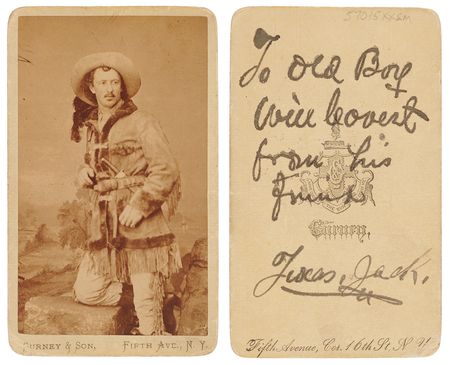 GURNEY & SON, FIFTH AVE., N. Y.
To Old Boy
Will
from his
Friend
Gurney,
Texas Jack.
Fifth Avenue, Cor. 16th St. N. Y.